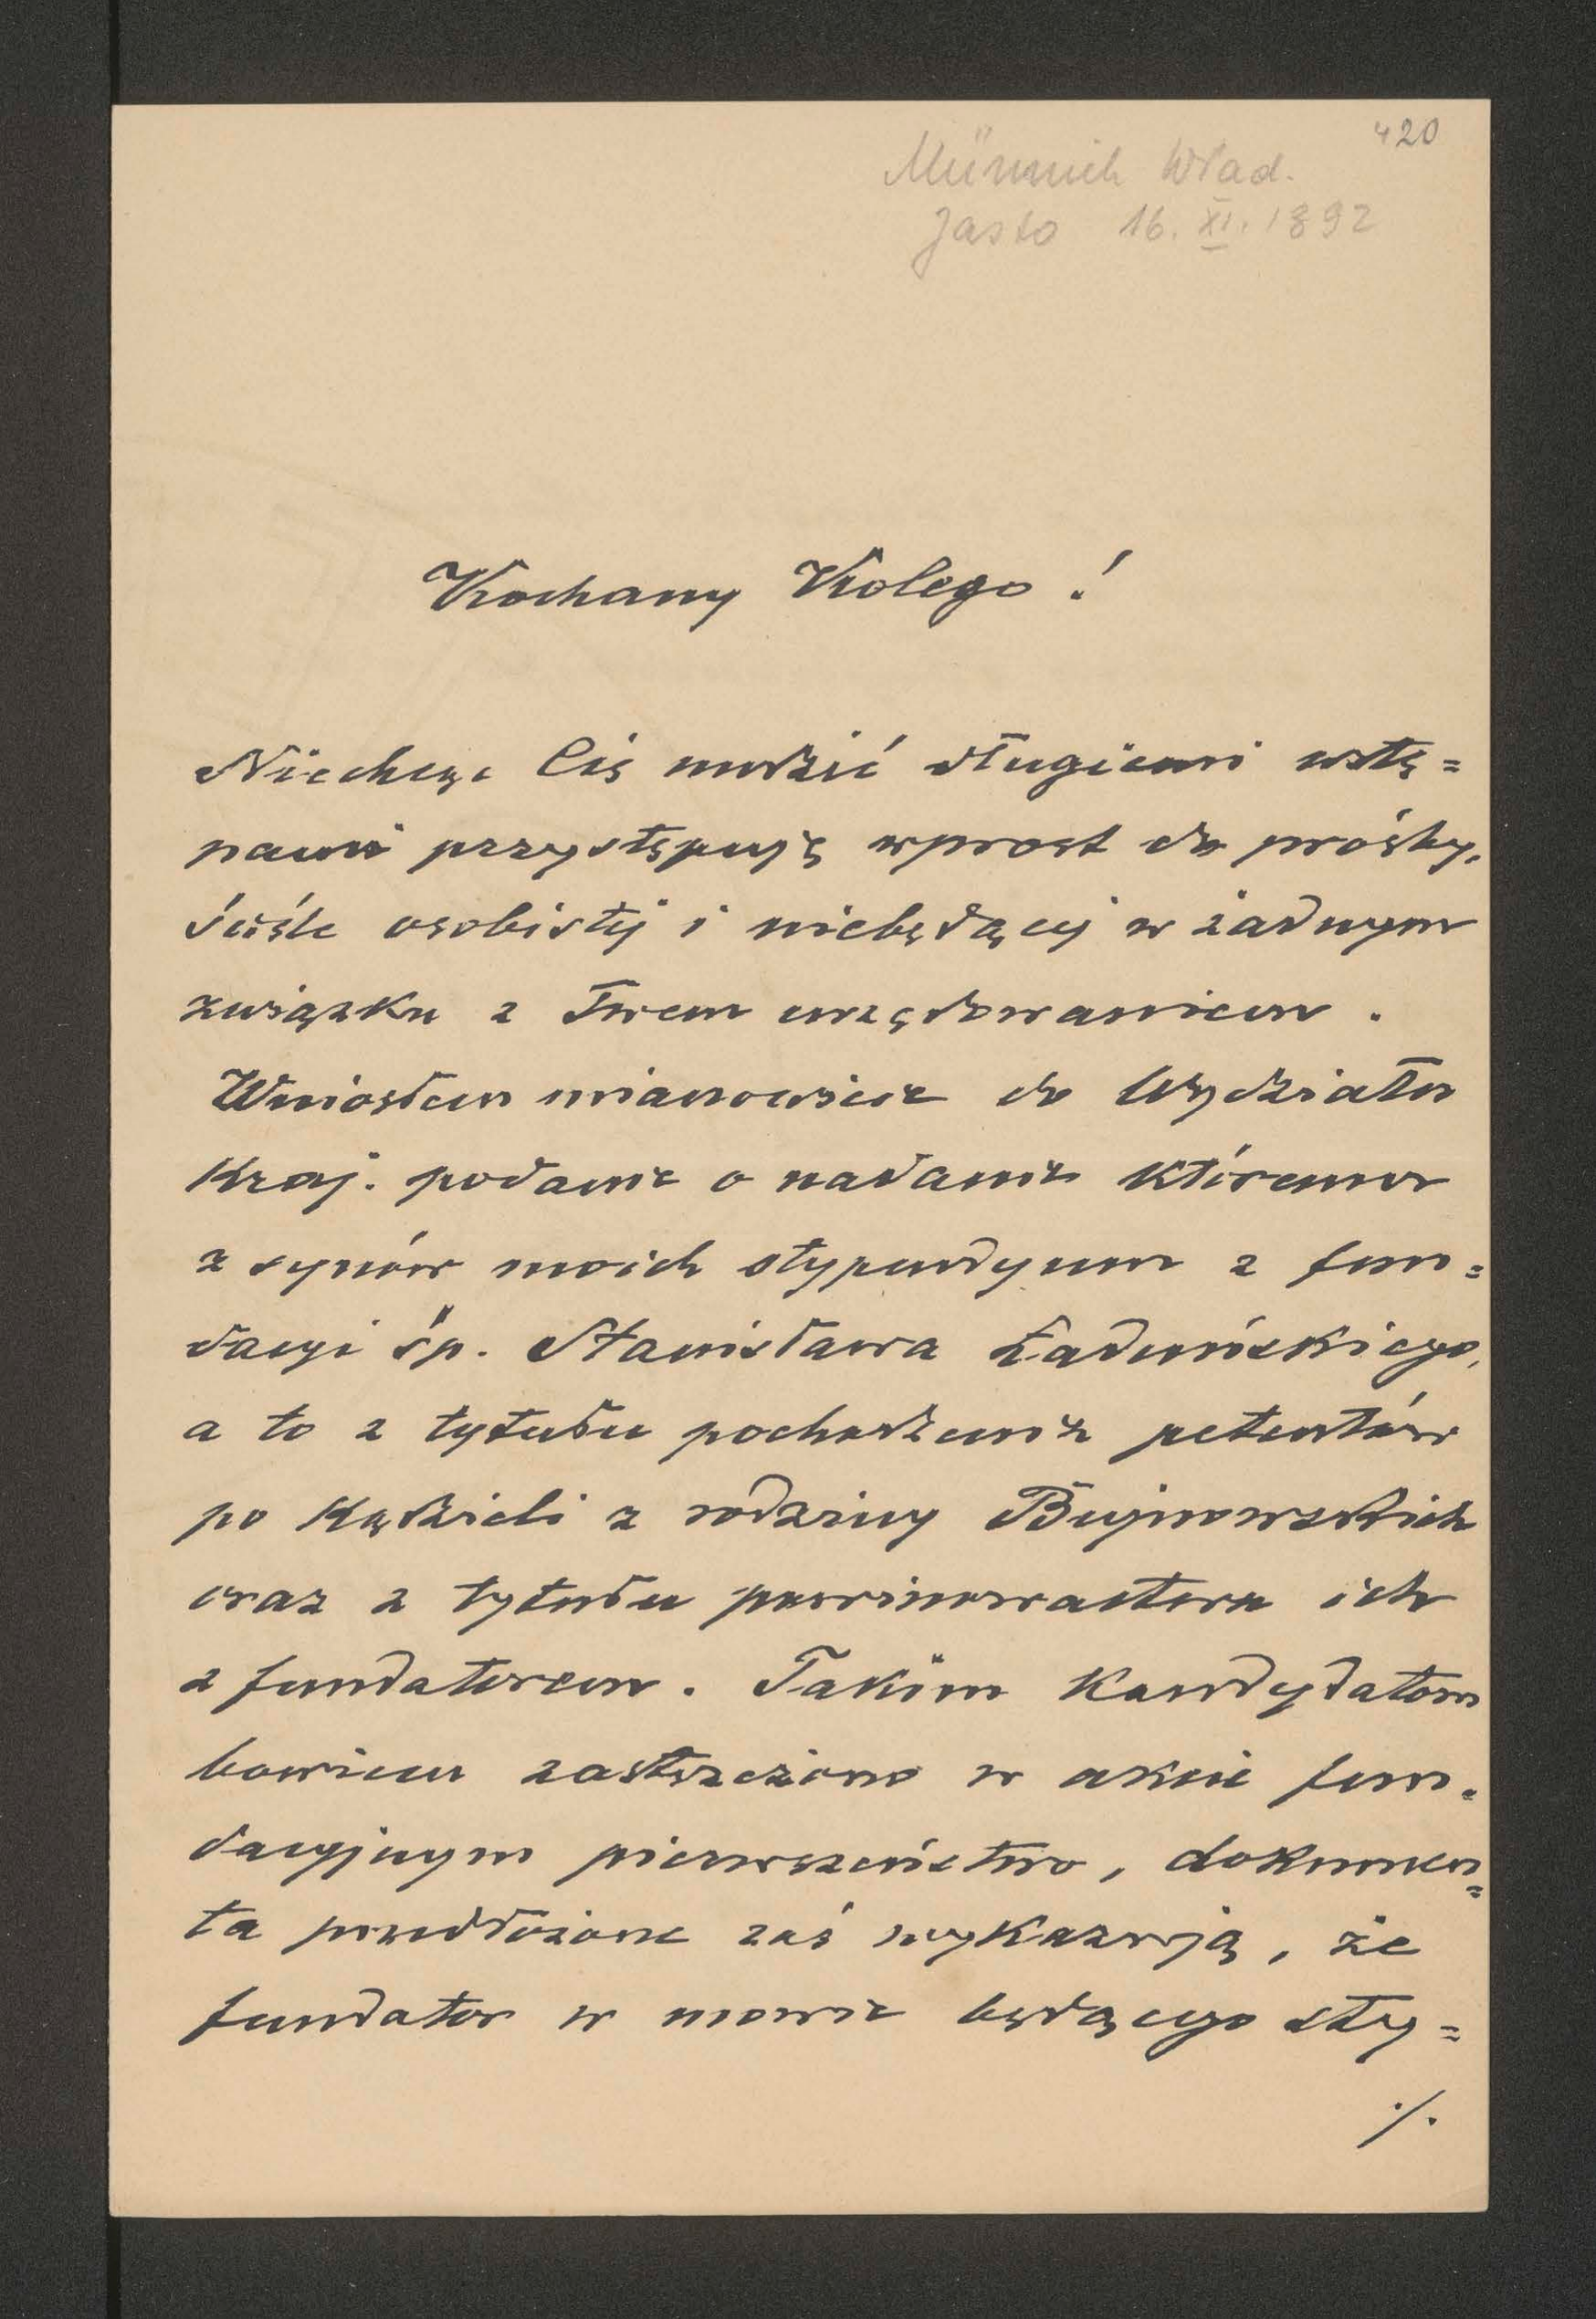 420
Münnich Wład.
Jasło 16. XI. 1892
Kochany Kolego !
Niechcąc Cię nudzić długiemi wstę=
pami przystępuję wprost do prośby,
ściśle osobistéj i niebędącej w żadnym
związku z Twem urzędowaniem .
Wniosłem mianowicie do Wydziału
Kraj. podanie o nadanie któremu
z synów moich stypendyum z fun=
dacyi śp. Stanisława Ładuńskiego,
a to z tytułu pochodzenia petentów
po kądzieli z rodziny Bujnowskich
oraz z tytułu powinowactwa ich
z fundatorem . Takim kandydatom
bowiem zastrzeżono w akcie fun=
dacyjnym pierwszeństwo , dokumen=
ta przedłożone zaś wykazują , że
fundator w mowie będącego sty=
./.